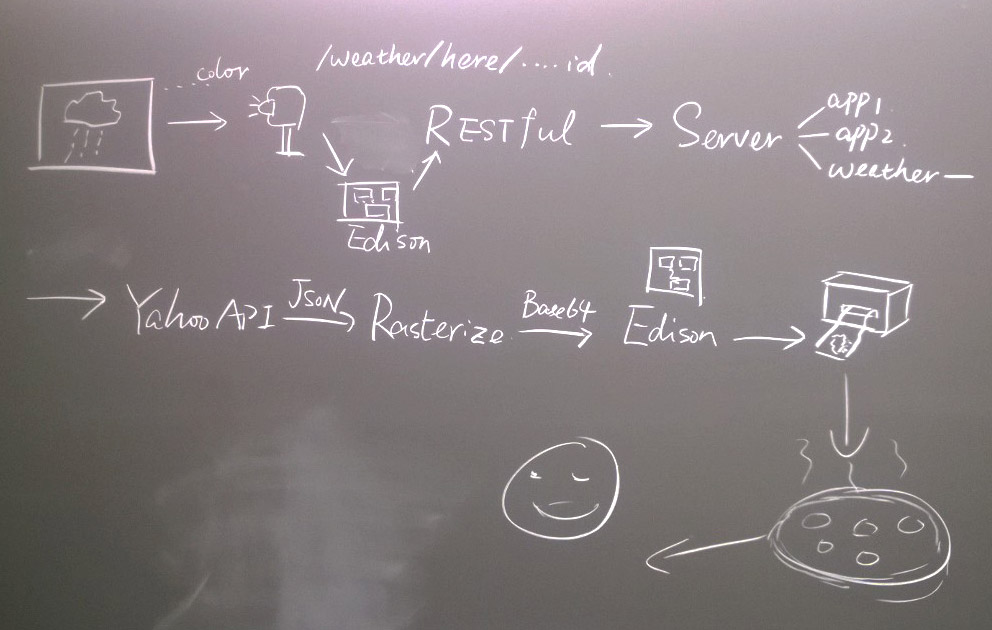 color
/weather/here/....id.
RESTful
Server
app1.
app2.
weather
Edison
Yahoo API
JSON
Rasterize
Base64
Edison